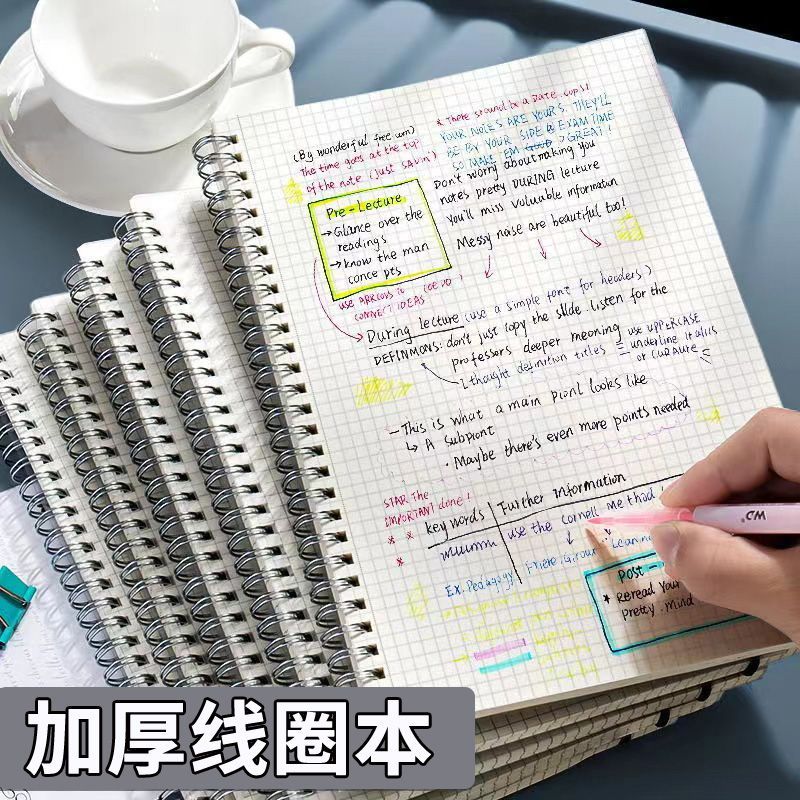 (By wonderful free um)
The time goes at the top
of the note (just SAVin)
* There should be a Date, cups!
YOUR NOTES ARE YOURS. THEY'LL
BE BY YOUR SIDE @ EXAM TIME
SO MAKE EM GOOD GREAT!
Pre-Lecture
→ Glance over the
readings
→ know the man
conce pts
Don't worry about making you
notes pretty DURING lecture
You'll miss valuable information
Messy nase are beautiful too!
USE ARROWS TO
CONNECT IDEAS
During lecture (use a simple font for headers)
DEFINMONS: don't just copy the slide. listen for the
professors deeper meaning
use UPPERCASE
underline italics
thought definition titles
or
- This is what a main pionl looks like
↳ A Subpiont
• Maybe there's even more points needed
STAR The
IMPORTANT done!
* *
*
key words
Further Information
use the cornell method!
Ex. Pedagogy
Post -
* Reread Your
Pretty. mind
加厚线圈本